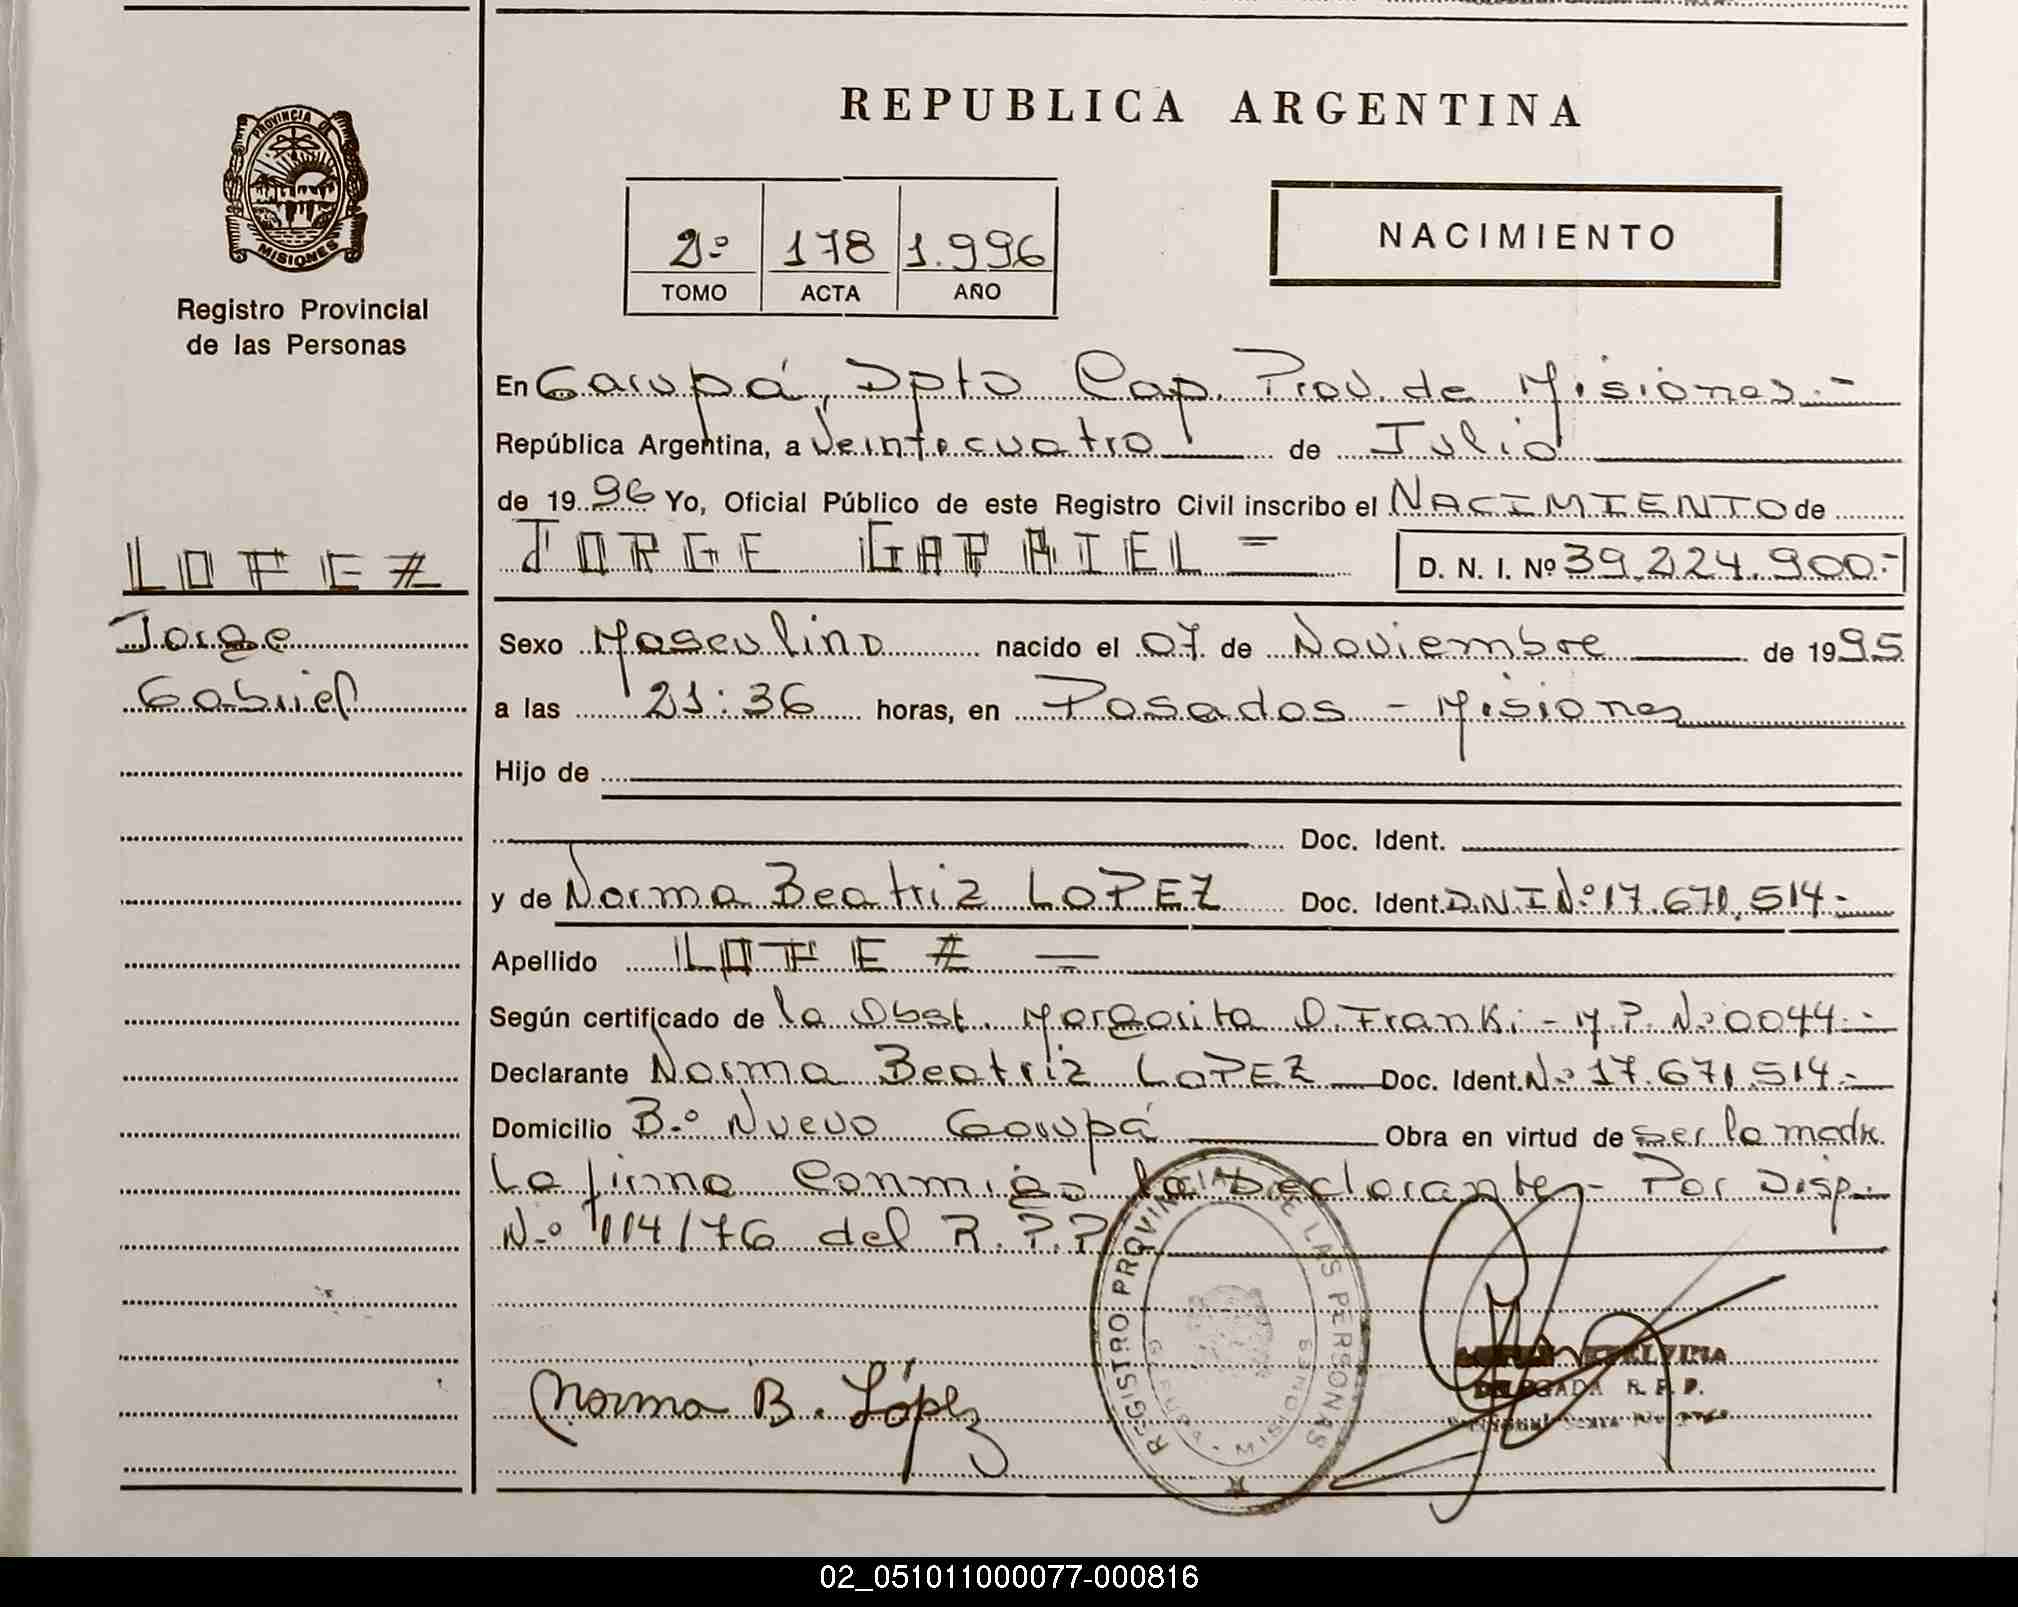 REPUBLICA ARGENTINA
PROVINCIA DE
MISIONES
Registro Provincial
de las Personas
2º 178 1.996
TOMO ACTA AÑO
NACIMIENTO
En Garupá, Dpto Cap. Prov. de Misiones.-
República Argentina, a Veinticuatro de Julio
de 19 96 Yo, Oficial Público de este Registro Civil inscribo el NACIMIENTO de
LOPEZ
Jorge
Gabriel
JORGE GABRIEL = D. N. I. Nº 39.224.900.-
Sexo Masculino nacido el 07 de Noviembre de 1995
a las 21:36 horas, en Posadas - Misiones
Hijo de
Doc. Ident.
y de Norma Beatriz LOPEZ Doc. Ident. D.N.I Nº 17.671.514.-
Apellido LOPEZ =
Según certificado de la Obst. Margarita D. Franki - M.P. Nº 0044.-
Declarante Norma Beatriz LOPEZ Doc. Ident. Nº 17.671.514.-
Domicilio B.º Nuevo Garupá Obra en virtud de ser la madre
La firma conmigo la declarante.- Por Disp.
N.º 114/76 del R.P.P.
REGISTRO PROVINCIAL DE LAS PERSONAS
GARUPA - MISIONES
DELEGADA R. P. P.
Norma B. López
02_051011000077-000816